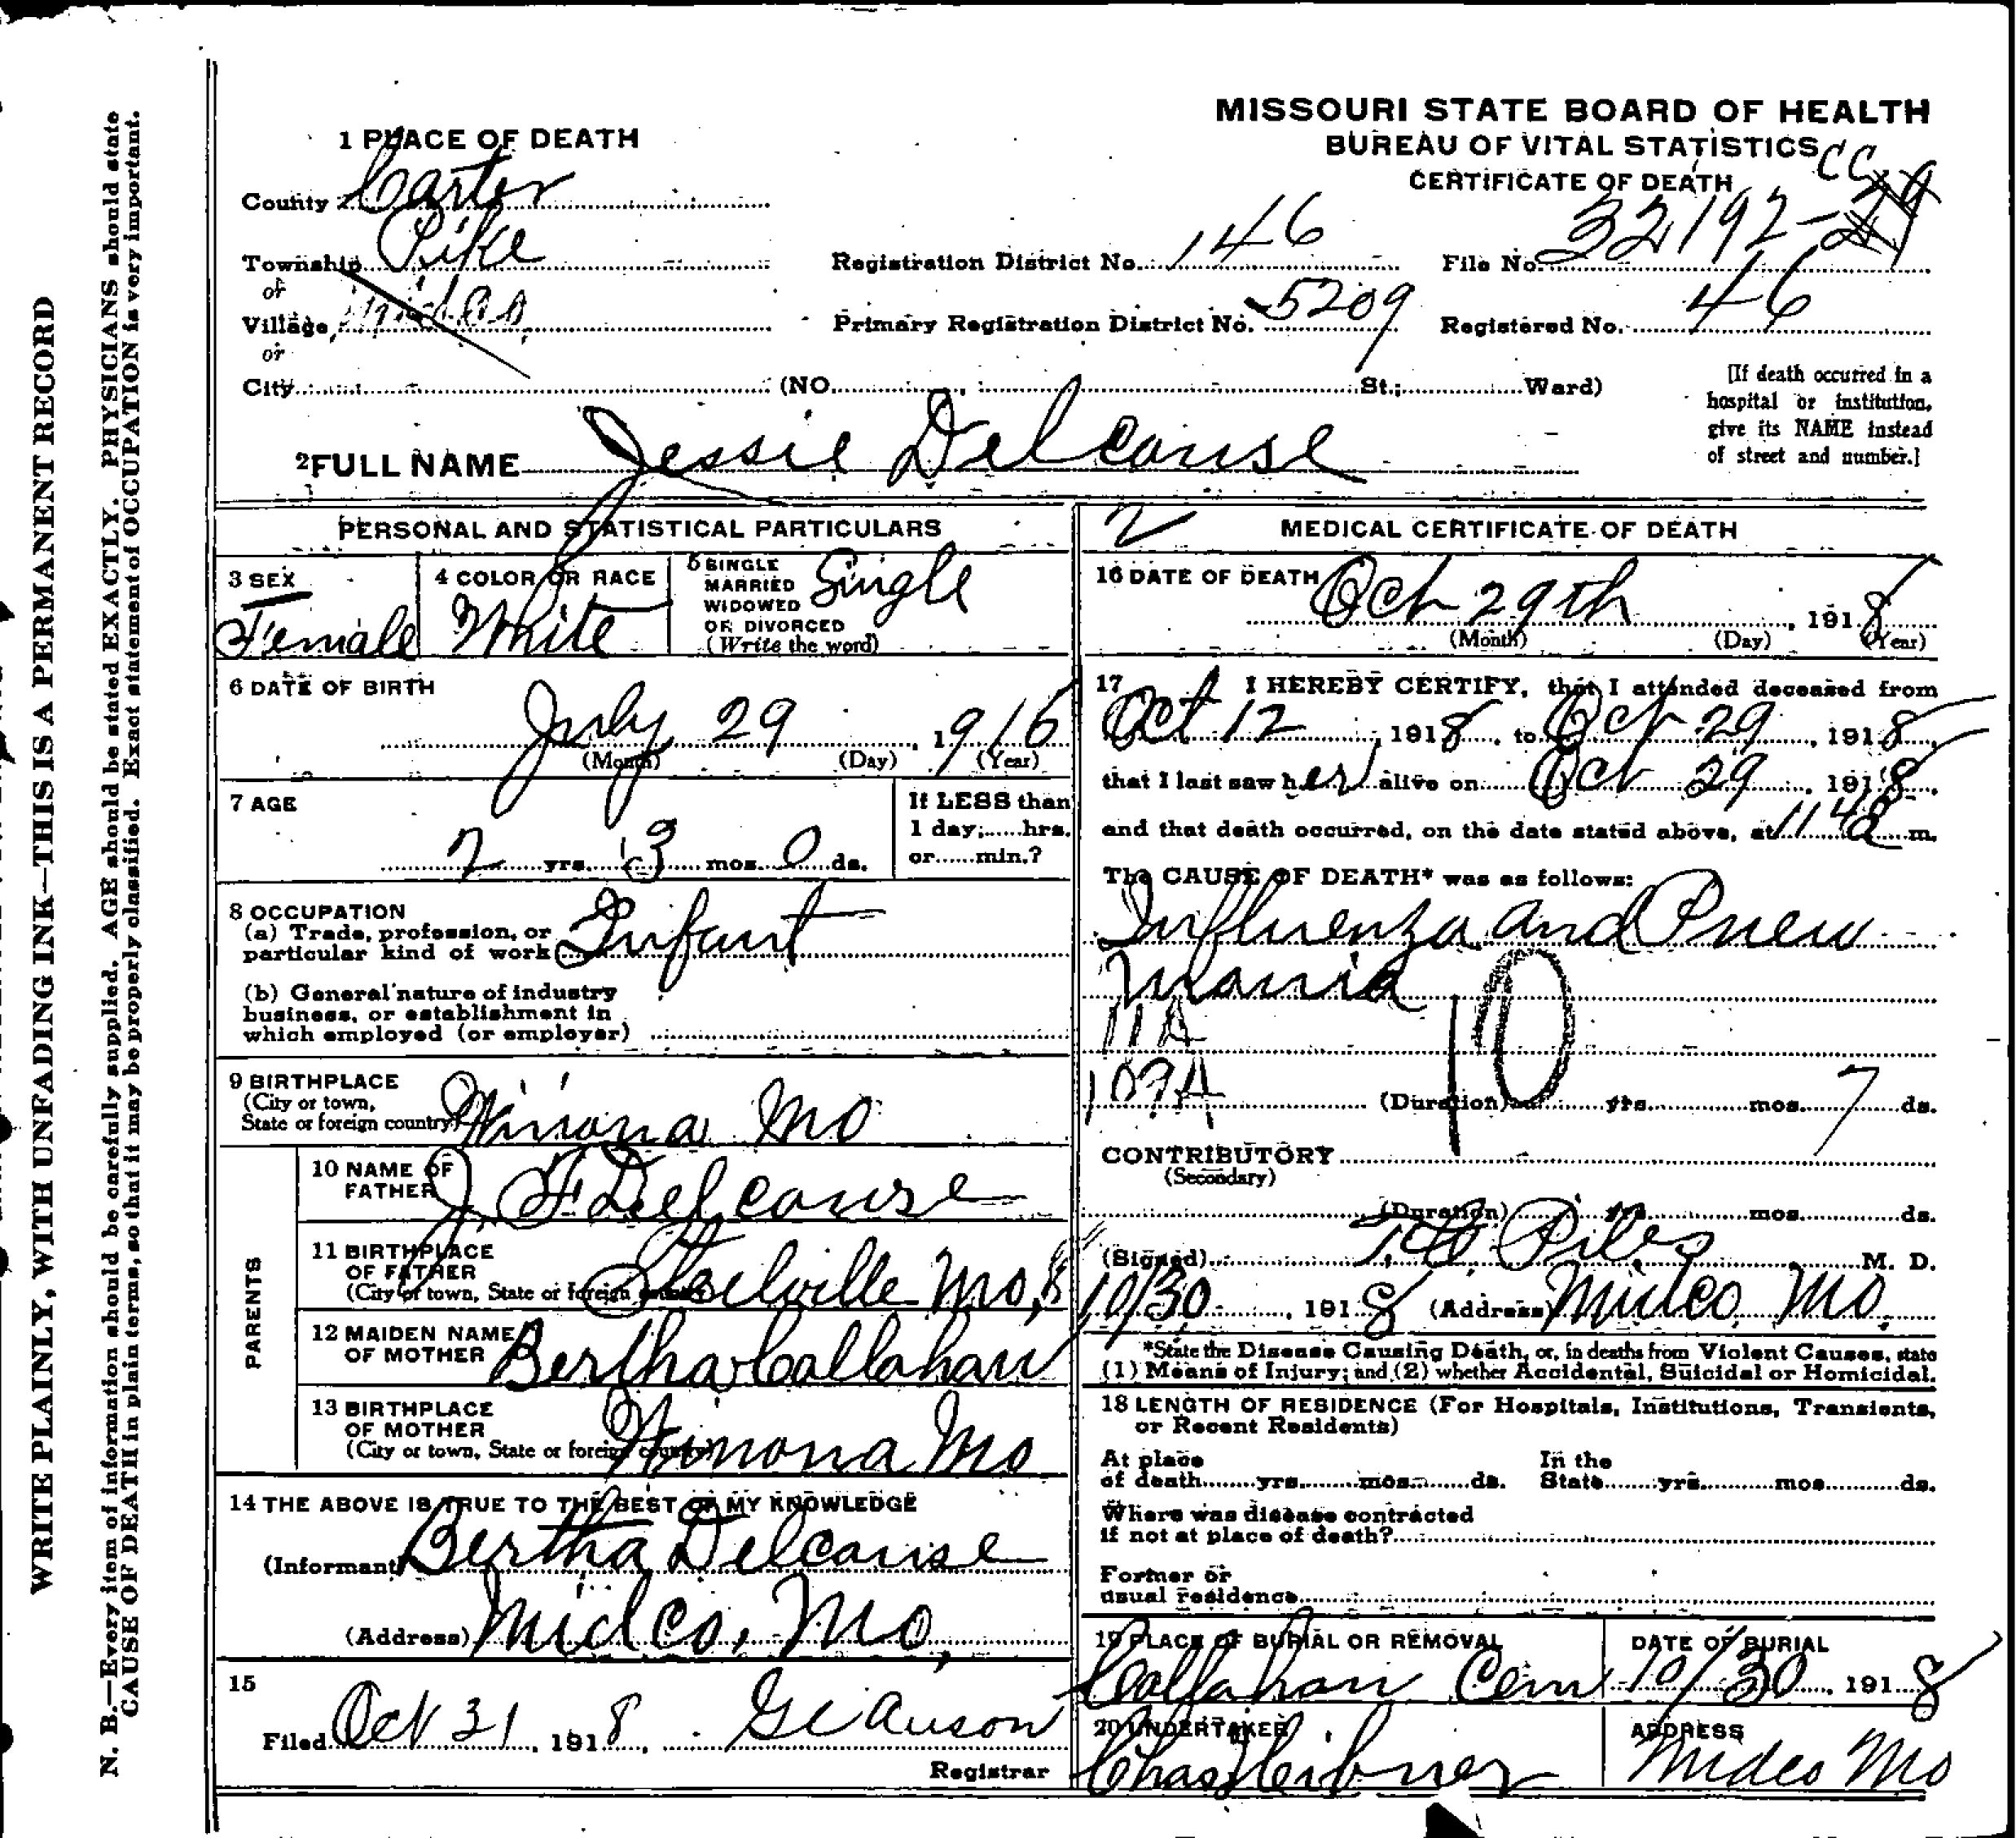 MISSOURI STATE BOARD OF HEALTH
BUREAU OF VITAL STATISTICS
CERTIFICATE OF DEATH
CC
1 PLACE OF DEATH
County Carter
Township Pike
or
Village
or
City (NO. St.; Ward)
Registration District No. 146 File No. 32192-
Primary Registration District No. 5209 Registered No. 46
[If death occurred in a
hospital or institution,
give its NAME instead
of street and number.]
2 FULL NAME Jessie Delcourse
PERSONAL AND STATISTICAL PARTICULARS
3 SEX Female
4 COLOR OR RACE White
5 SINGLE
MARRIED
WIDOWED
OR DIVORCED
(Write the word) Single
6 DATE OF BIRTH
July 29, 1916
(Month) (Day) (Year)
7 AGE
2 yrs. 3 mos. 0 ds.
If LESS than
1 day, hrs.
or min.?
8 OCCUPATION
(a) Trade, profession, or
particular kind of work Infant
(b) General nature of industry
business, or establishment in
which employed (or employer)
9 BIRTHPLACE
(City or town,
State or foreign country) Winona Mo
PARENTS
10 NAME OF
FATHER J. F Delcourse
11 BIRTHPLACE
OF FATHER
(City or town, State or foreign country) Steelville Mo,
12 MAIDEN NAME
OF MOTHER Bertha Callahan
13 BIRTHPLACE
OF MOTHER
(City or town, State or foreign country) Winona Mo
14 THE ABOVE IS TRUE TO THE BEST OF MY KNOWLEDGE
(Informant) Bertha Delcourse
(Address) Midco, Mo,
15
Filed Oct 31, 1918,
Registrar
2
MEDICAL CERTIFICATE OF DEATH
16 DATE OF DEATH Oct 29th, 1918
(Month) (Day) (Year)
17 I HEREBY CERTIFY, that I attended deceased from
Oct 12, 1918, to Oct 29, 1918,
that I last saw her alive on Oct 29, 1918,
and that death occurred, on the date stated above, at m.
The CAUSE OF DEATH* was as follows:
Influenza and Pneu
monia
11A
10
(Duration) yrs. mos. 7 ds.
CONTRIBUTORY
(Secondary)
(Duration) yrs. mos. ds.
(Signed) Piles M. D.
10/30, 1918 (Address) Midco, Mo.
*State the Disease Causing Death, or, in deaths from Violent Causes, state
(1) Means of Injury; and (2) whether Accidental, Suicidal or Homicidal.
18 LENGTH OF RESIDENCE (For Hospitals, Institutions, Transients,
or Recent Residents)
At place
of death yrs. mos. ds.
In the
State yrs. mos. ds.
Where was disease contracted
if not at place of death?
Former or
usual residence
19 PLACE OF BURIAL OR REMOVAL
Callahan Cem
DATE OF BURIAL
10/30, 1918
20 UNDERTAKER
Chas
ADDRESS
Midco Mo
WRITE PLAINLY, WITH UNFADING INK—THIS IS A PERMANENT RECORD
N. B.—Every item of information should be carefully supplied. AGE should be stated EXACTLY. PHYSICIANS should state
CAUSE OF DEATH in plain terms, so that it may be properly classified. Exact statement of OCCUPATION is very important.